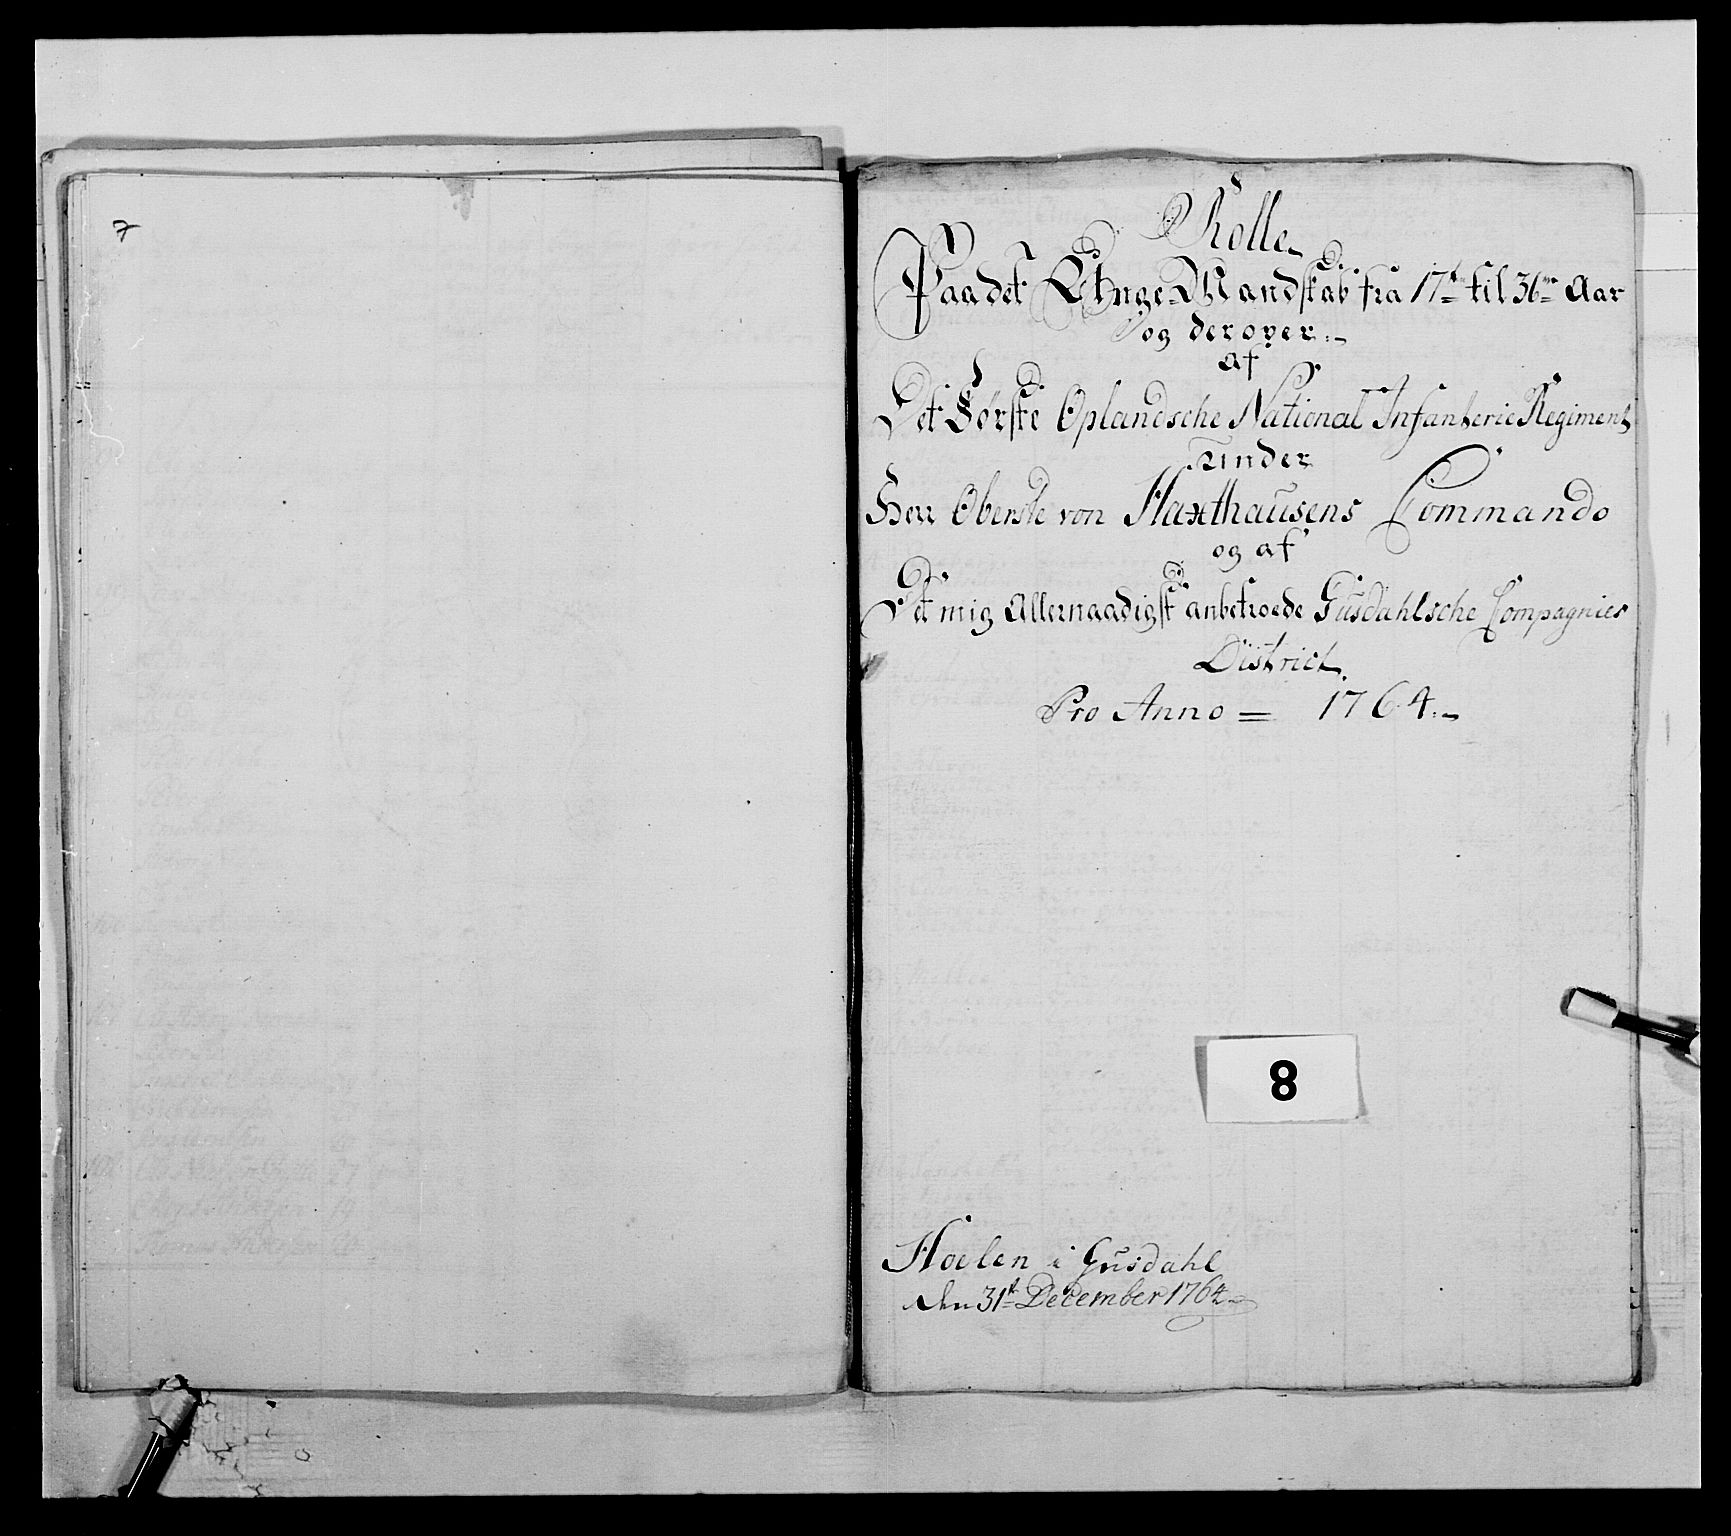 7
Rolle
Paa det Unge Mandskab fra 17t til 36te Aar
og derover
af
Det Første Oplandsche National Infanterie Regiment
under
Herr Oberste von Haxthausens Commando
og af
Det mig Allernaadigst anbetroede Gusdahlsche Compagnies
District
Pro Anno = 1764
8
Hoelen i Gusdahl
den 31t December 1764